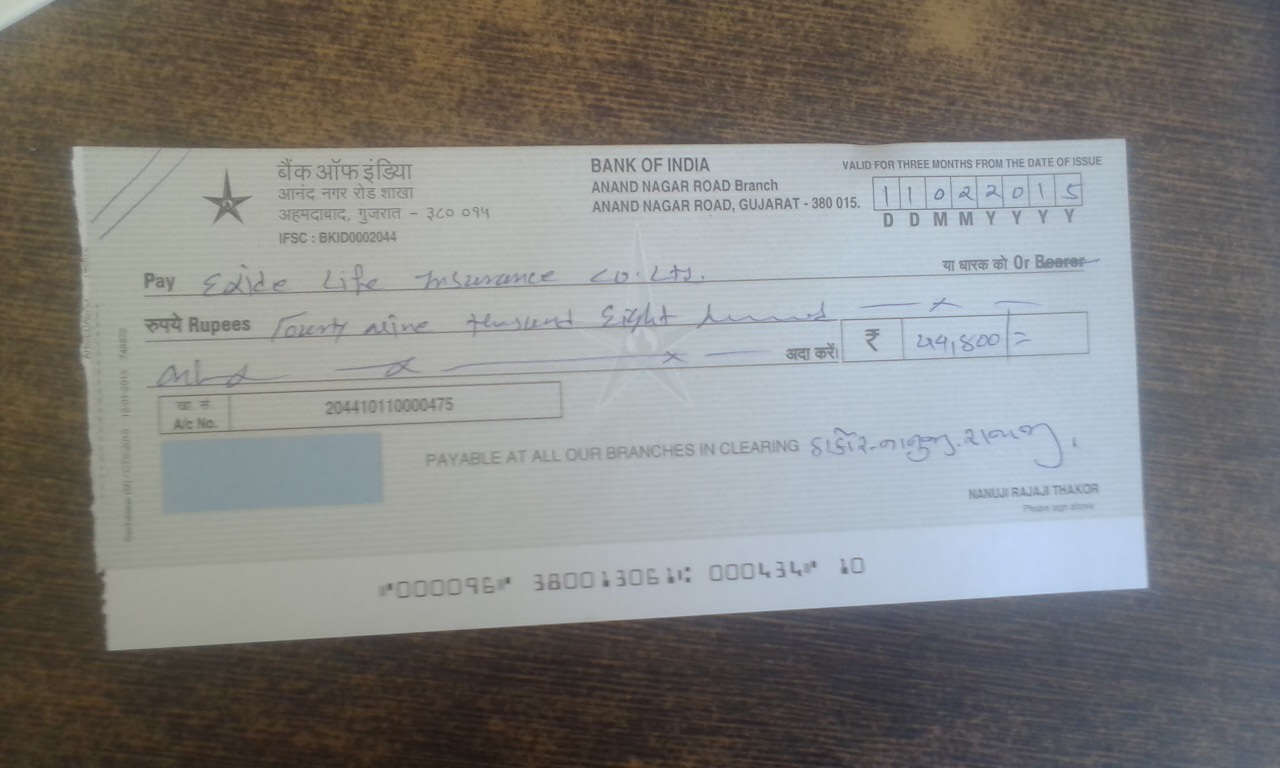 बैंक ऑफ इंडिया
आनंद नगर रोड शाखा
अहमदाबाद, गुजरात - ३८० ०१५
IFSC : BKID0002044
BANK OF INDIA
ANAND NAGAR ROAD Branch
ANAND NAGAR ROAD, GUJARAT - 380 015.
VALID FOR THREE MONTHS FROM THE DATE OF ISSUE
1 1 0 2 2 0 1 5
D D M M Y Y Y Y
Pay Exide Life Insurance Co. Ltd.
या धारक को Or Bearer
रुपये Rupees Fourty nine thousand Eight hundred
अदा करें। ₹ 49,800/=
खा. सं. A/c No. 204410110000475
PAYABLE AT ALL OUR BRANCHES IN CLEARING
NANUJI RAJAJI THAKOR
Please sign above
⑈000096⑈ 380013061⑆ 000434⑈ 10